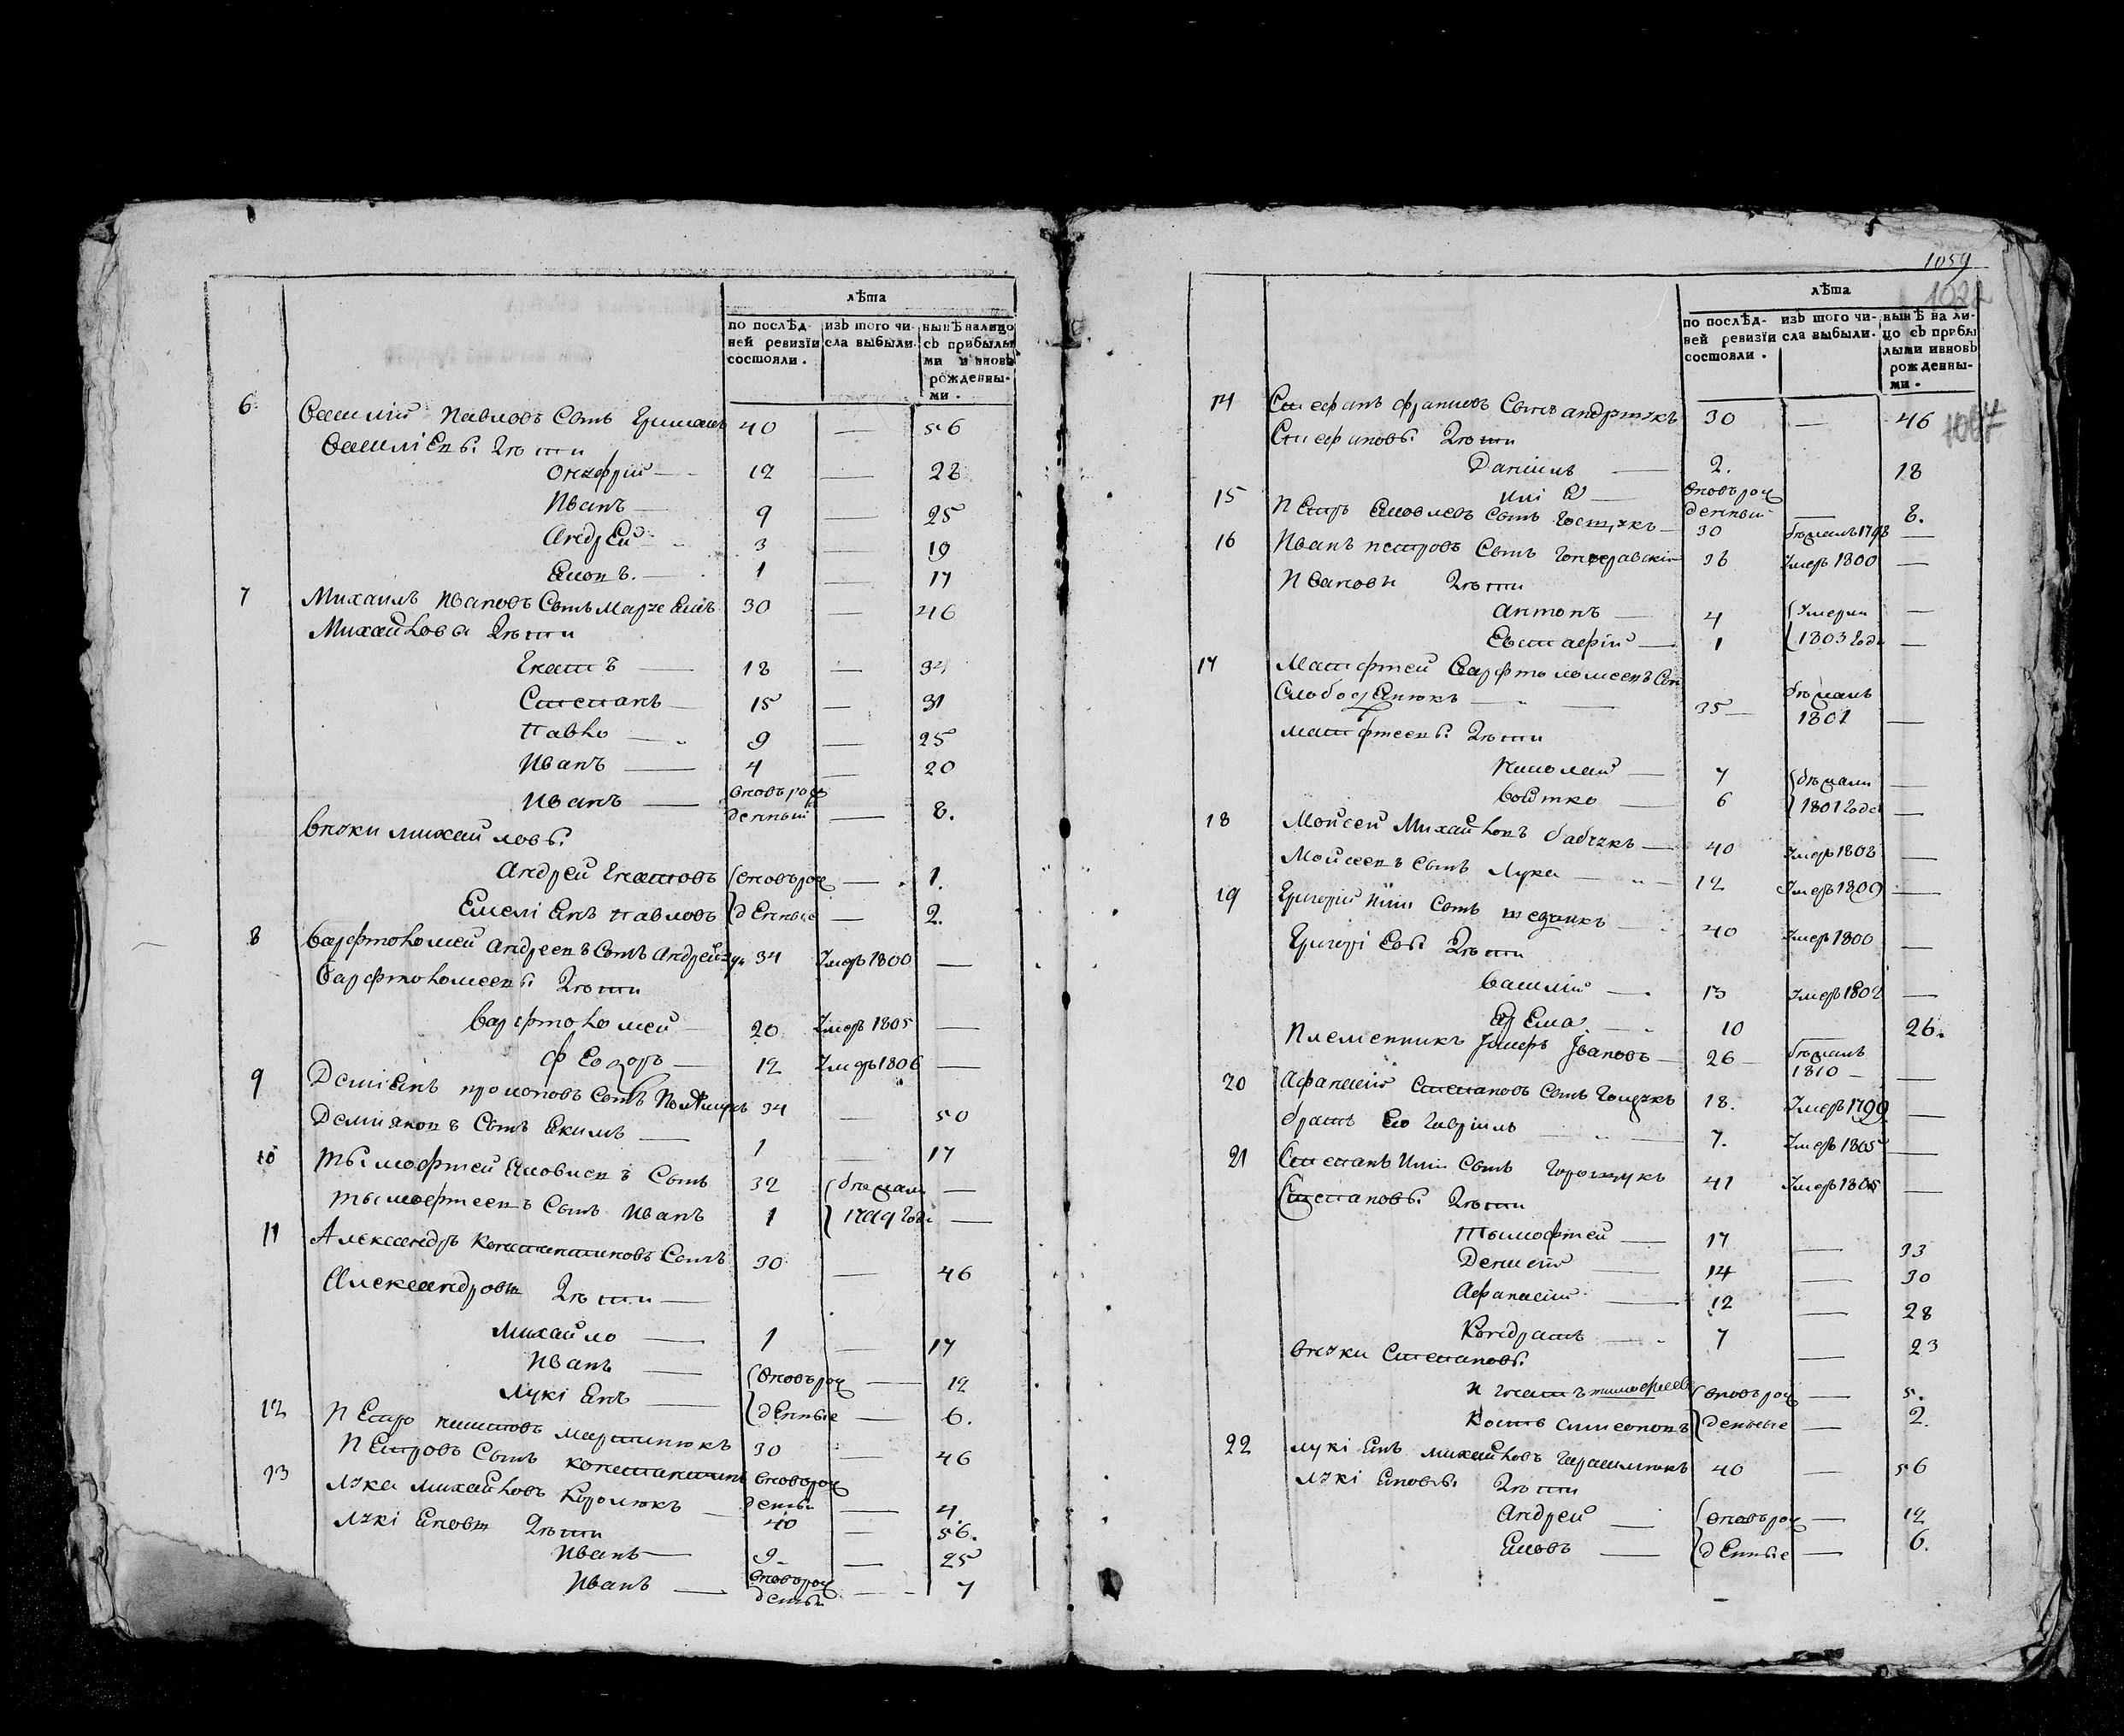 лѣта
по послѣд-
ней ревизїи
состояли.
изъ того чи-
сла выбыли.
нынѣ налицо
съ прибылы
ми и вновь
рожденны-
ми.
6. Василий Павловъ Сынъ 40 — 56
Василіевы Дѣти
Онуфрій — 12 — 28
Иванъ — 9 — 25
Андрей — 3 — 19
Яковъ. — 1 — 17
7 Михаилъ Ивановъ Сынъ 30 — 46
Михайлова Дѣти
Игнатъ — 18 — 34
Степанъ — 15 — 31
Павло — 9 — 25
Иванъ — 4 — 20
Иванъ — вновьрож
денный — 8.
Внуки михайловы
Андрей Игнатовъ (вновьрож — 1.
Емеліянъ Павловъ денные — 2.
8 Варфтоломей Андреевъ Сынъ 34 Умеръ 1800 —
Варфтоломеевы Дѣти
Варфтоломей — 20 Умеръ 1805 —
Феодоръ — 12 Умеръ 1806 —
9 Деміянъ Прокоповъ Сынъ 34 — 50
Демяновъ Сынъ Якимъ — 1 — 17
10 Тымофтей Яковлевъ Сынъ 32 (бѣжали —
Тымофтеевъ Сынъ Иванъ 1 1799 Года —
11 Александръ Констянтиновъ Сынъ 30 — 46
Александровы Дѣти —
Михайло — 1 — 17
Иванъ — (вновьрож — 12
Лукіянъ — денные — 6.
12 Петро Мартинюкъ 30 — 46
Петровъ Сынъ Константинъ вновьрож
денны — 4.
13 Лука Михайловъ Королюкъ — 40 — 56.
Лукіяновы Дѣти
Иванъ — 9 — 25
Иванъ — вновьрож
денны — 7
1059
лѣта
по послѣд-
ней ревизїи
состояли.
изъ того чи-
сла выбыли.
нынѣ на ли-
цо съ прибы
лыми ивновь
рожденны-
ми.
14 Стефанъ Сынъ Андрѣюкъ 30 — 46
Стефановы Дѣти
Данийлъ — 2. 18
Илія — вновьрож
денный — 8.
15 Петръ Яковлевъ Сынъ — 30 бѣжалъ 1798 —
16 Иванъ Петровъ Сынъ 36 Умеръ 1800 —
Ивановы Дѣти
Антонъ — 4 (Умерли —
Евстафій — 1 1803 Года —
17 Матфтей Варфтоломеевъ Сын
Слободянюкъ — 35 — бѣжалъ
1801 —
Матфтеевы Дѣти
Николай — 7 (бѣжали —
Войтко — 6 1801 Года —
18 Мойсей Михайловъ бабчукъ — 40 Умеръ 1808 —
Мойсеевъ Сынъ Лука — 12 Умеръ 1809 —
19 Григорій Сынъ 40 Умеръ 1800 —
Григоріевы Дѣти
Василій — 13 Умеръ 1802 —
Ярема — 10 — 26.
Племенникъ Ивановъ — 26 — бѣжалъ
1810 — —
20 Афанасій Степановъ Сынъ 18. Умеръ 1799 —
братъ Его Гавріилъ — 7. Умеръ 1805 —
21 Степанъ Сынъ 41 Умеръ 1805 —
Степановы Дѣти
Тымофтей — 17 — 33
Денисій — 14 — 30
Афанасій — 12 — 28
Кондратъ — 7 — 23
Внуки Степановы
Игнатъ тимофеевъ (вновьрож — 5.
Костъ Симеоновъ денные — 2.
22 Лукіянъ Михайловъ Герасимюкъ 40 — 56
Лукіяновы Дѣти
Андрей — (вновьрож — 12
Яковъ — денные — 6.